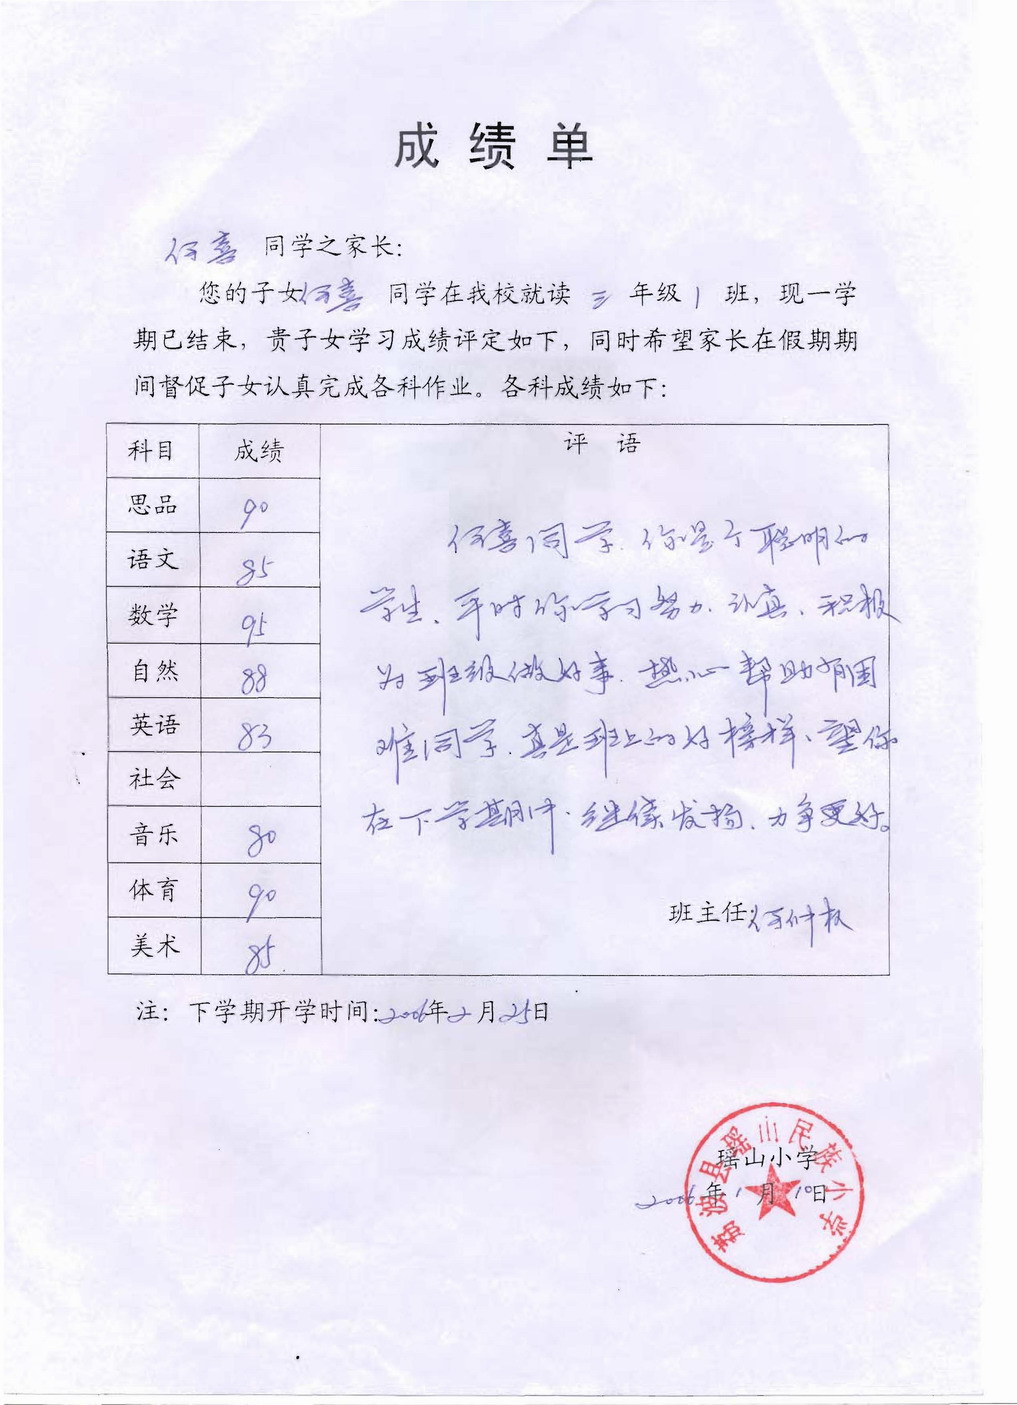 成绩单
何喜 同学之家长:
您的子女何喜 同学在我校就读 三 年级 1 班，现一学
期已结束，贵子女学习成绩评定如下，同时希望家长在假期期
间督促子女认真完成各科作业。各科成绩如下:
科目 成绩 评 语
思品 90
语文 85
数学 95
自然 88
英语 83
社会
音乐 80
体育 90
美术 85
何喜同学、你是个聪明的
学生、平时你学习努力、认真、积极
为班级做好事、热心帮助有困
难同学、真是班上的好榜样、望你
在下学期中、继续发扬、力争更好。
班主任:何仲权
注: 下学期开学时间:2006年2月25日
荔波县瑶山民族小学
瑶山小学
2006年1月10日